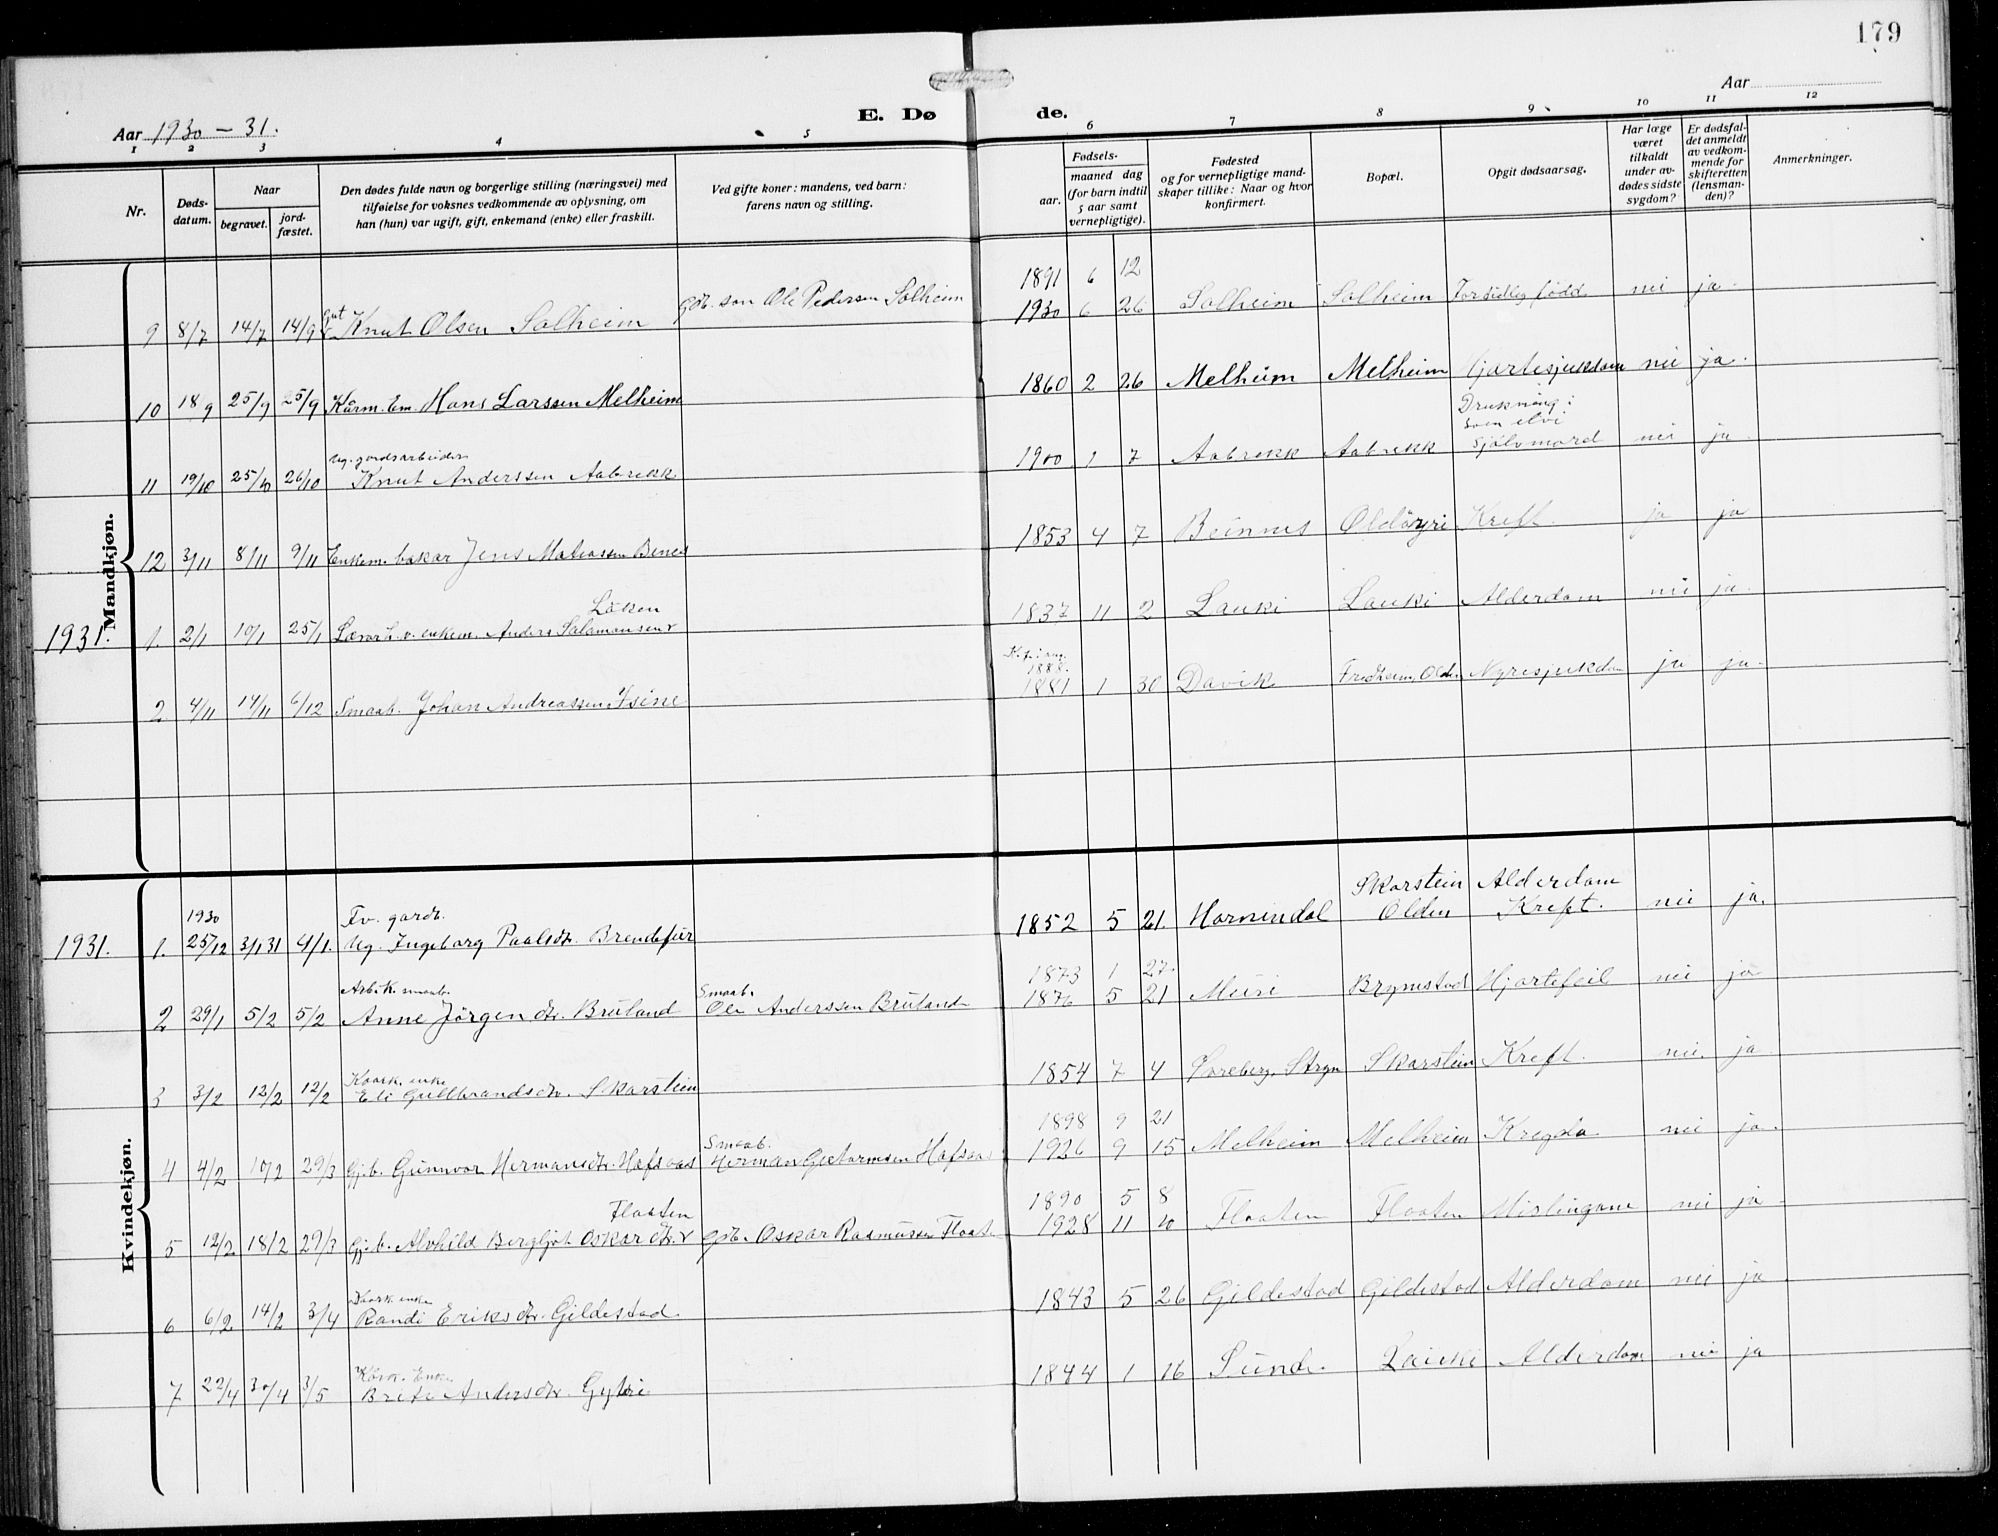 179
Aar 1930 - 31.
E. Dø de.
Aar
1 2 3 4 5 6 7 8 9 10 11 12
Nr.
Døds-
datum.
Naar
begravet.
jord-
fæstet.
Den dødes fulde navn og borgerlige stilling (næringsvei) med
tilføielse for voksnes vedkommende av oplysning, om
han (hun) var ugift, gift, enkemand (enke) eller fraskilt.
Ved gifte koner: mandens, ved barn:
farens navn og stilling.
Fødsels-
aar.
maaned dag
(for barn indtil
5 aar samt
vernepligtige).
Fødested
og for vernepligtige mand-
skaper tillike: Naar og hvor
konfirmert.
Bopæl.
Opgit dødsaarsag.
Har læge
været
tilkaldt
under av-
dødes sidste
sygdom?
Er dødsfal-
det anmeldt
av vedkom-
mende for
skifteretten
(lensman-
den)?
Anmerkninger.
Mandkjøn.
1891 6 12
9 8/7 14/7 14/9 gut Knut Olsen Solheim gdb. son Ole Pedersen Solheim 1930 6 26 Solheim Solheim For tidleg fødd nei ja.
10 18/9 25/9 25/9 Kårm. Em. Hans Larssen Melheim 1860 2 26 Melheim Melheim Hjartesjukdom nei ja.
Drukning i
Ug. gardsarbeider
11 19/10 25/10 26/10 Knut Anderssen Aabrekk 1900 1 7 Aabrekk Aabrekk Sjølvmord nei ja.
12 3/11 8/11 9/11 Enkem. bakar Jens Matiassen Benes 1853 4 7 Beinnes Oldøyri Kreft. ja ja
Løken
1931. 1. 2/1 10/1 25/1 enkem. Anders Salamonsen 1837 11 2 Lauki Lauki Alderdom nei ja.
1888.
2 4/11 14/11 6/12 Smaab. Johan Andreassen Isine 1881 1 30 Davik Fredheim, Olden Nyresjukdom ja ja.
Kvindekjøn.
1930 Fv. gardb. Skarstein Alderdom
1931. 1. 25/12 3/1 31 4/1. Ug. Ingeborg Paalsdr. Brendefur 1852 5 21. Hornindal Olden Kreft. nei ja.
Arb.k. smaab. Smaab. 1873 1 27.
2 29/1 5/2 5/2 Anne Jørgendtr. Bruland Ole Anderssen Bruland 1876 5 21 Muri Brynestad Hjartefeil nei ja
Kaark. enke
3 3/2 12/2 12/2 Eli Gullbrandsdtr. Skarstein 1854 7 4 Stryn Skarstein Kreft. nei. ja
Smaab. 1898 9 21
4 4/2 10/2 29/3 Gjb. Gunnvor Hermansdtr. Hafsaas Herman Guttormsen Hafsaas 1926 9 15 Melheim Melheim nei ja.
Flaaten 1890 5 8
5 12/2 18/2 29/3 Gjb. Alvhild Bergljot Oskardtr. gdb. Oskar Rasmussen Flaaten 1928 11 10 Flaaten Flaaten Mislingane nei ja
Kaark. enke
6 6/2 14/2 3/4 Randi Eriksdtr. Gildestad 1843 5 26 Gildestad Gildestad Alderdom nei ja
Kårk. Enke
7 22/4 30/4 3/5 Brite Andersdtr. Gytri 1844 1 16 Sunde. Alderdom nei ja